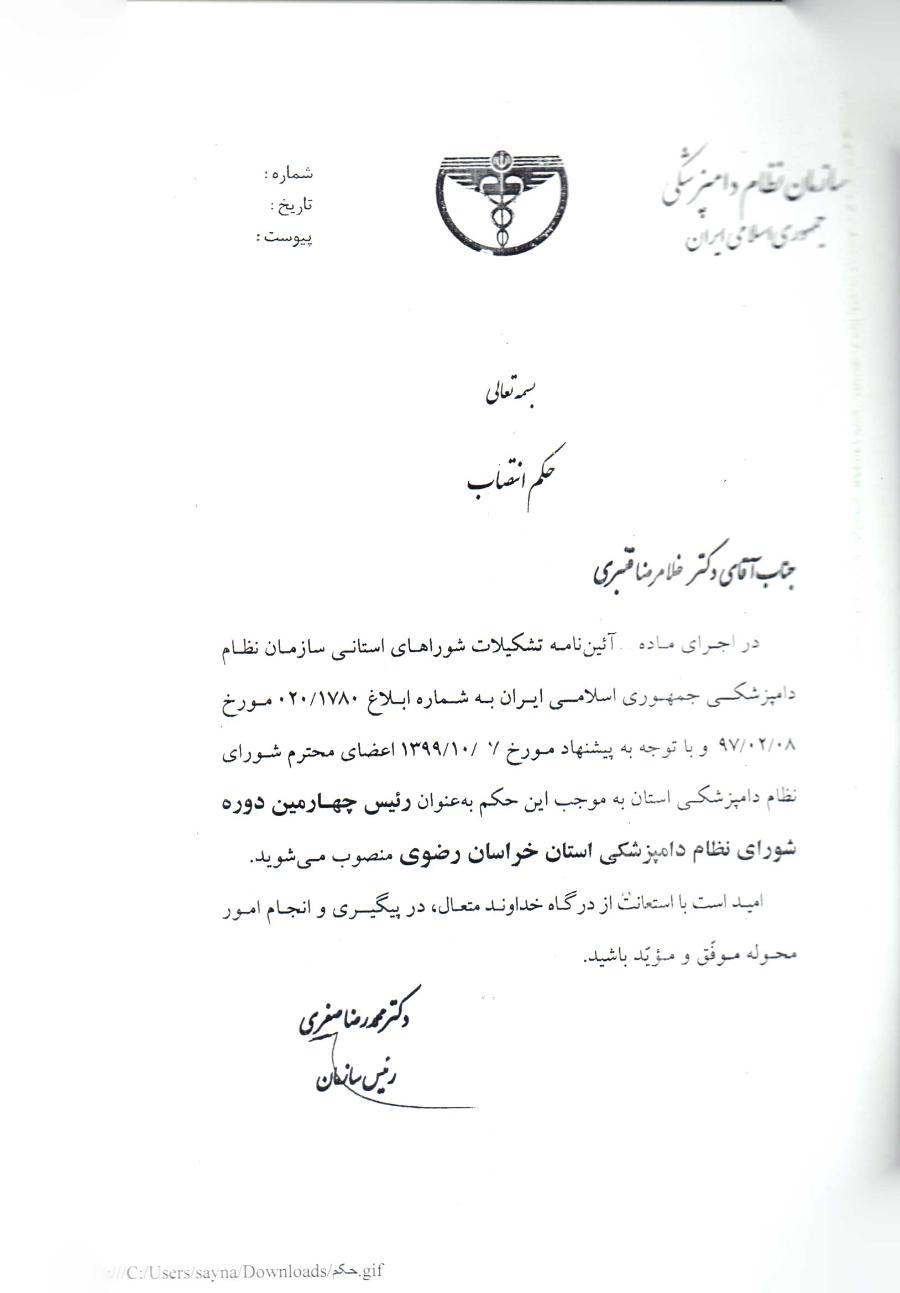 سازمان نظام دامپزشکی
جمهوری اسلامی ایران
شماره :
تاریخ :
پیوست :
بسمه تعالی
حکم انتصاب
جناب آقای دکتر غلامرضا قنبری
در اجرای ماده آئین‌نامه تشکیلات شوراهای استانی سازمان نظام
دامپزشکی جمهوری اسلامی ایران به شماره ابلاغ ۰۲۰/۱۷۸۰ مورخ
۹۷/۰۲/۰۸ و با توجه به پیشنهاد مورخ ۱۳۹۹/۱۰/ اعضای محترم شورای
نظام دامپزشکی استان به موجب این حکم به‌عنوان رئیس چهارمین دوره
شورای نظام دامپزشکی استان خراسان رضوی منصوب می‌شوید.
امید است با استعانت از درگاه خداوند متعال، در پیگیری و انجام امور
محوله موفّق و مؤیّد باشید.
دکتر محمدرضا صفری
رئیس سازمان
///C:/Users/sayna/Downloads/حکم.gif